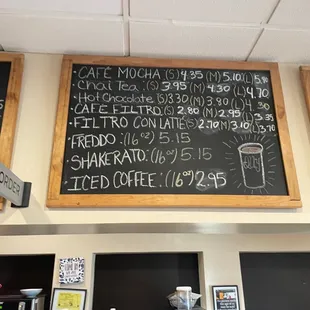 • CAFÉ MOCHA (S) 4.35 (M) 5.10 (L) 5.80
• Chai Tea : (S) 3.95 (M) 4.30 (L) 4.70
• Hot Chocolate (S) 3.30 (M) 3.80 (L) 4.30
• CAFÉ FILTRO (S) 2.80 (M) 2.95
• FILTRO CON LATTE (S) 2.70 (M) 3.10 (L) 3.70
• FREDDO : (16 oz) 5.15
• SHAKERATO : (16 oz) 5.15
• ICED COFFEE : (16 oz) 2.95
ORDER